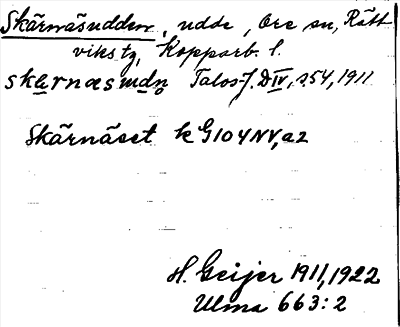 Skärnäsudden, udde, Ore sn, Rätt-
viks tg, Kopparb. l.
skærnæsudn Talos J. DIV, s. 54, 1911
Skärnäset k G104NV, a2
H. Geijer 1911, 1922
Ulma 663:2